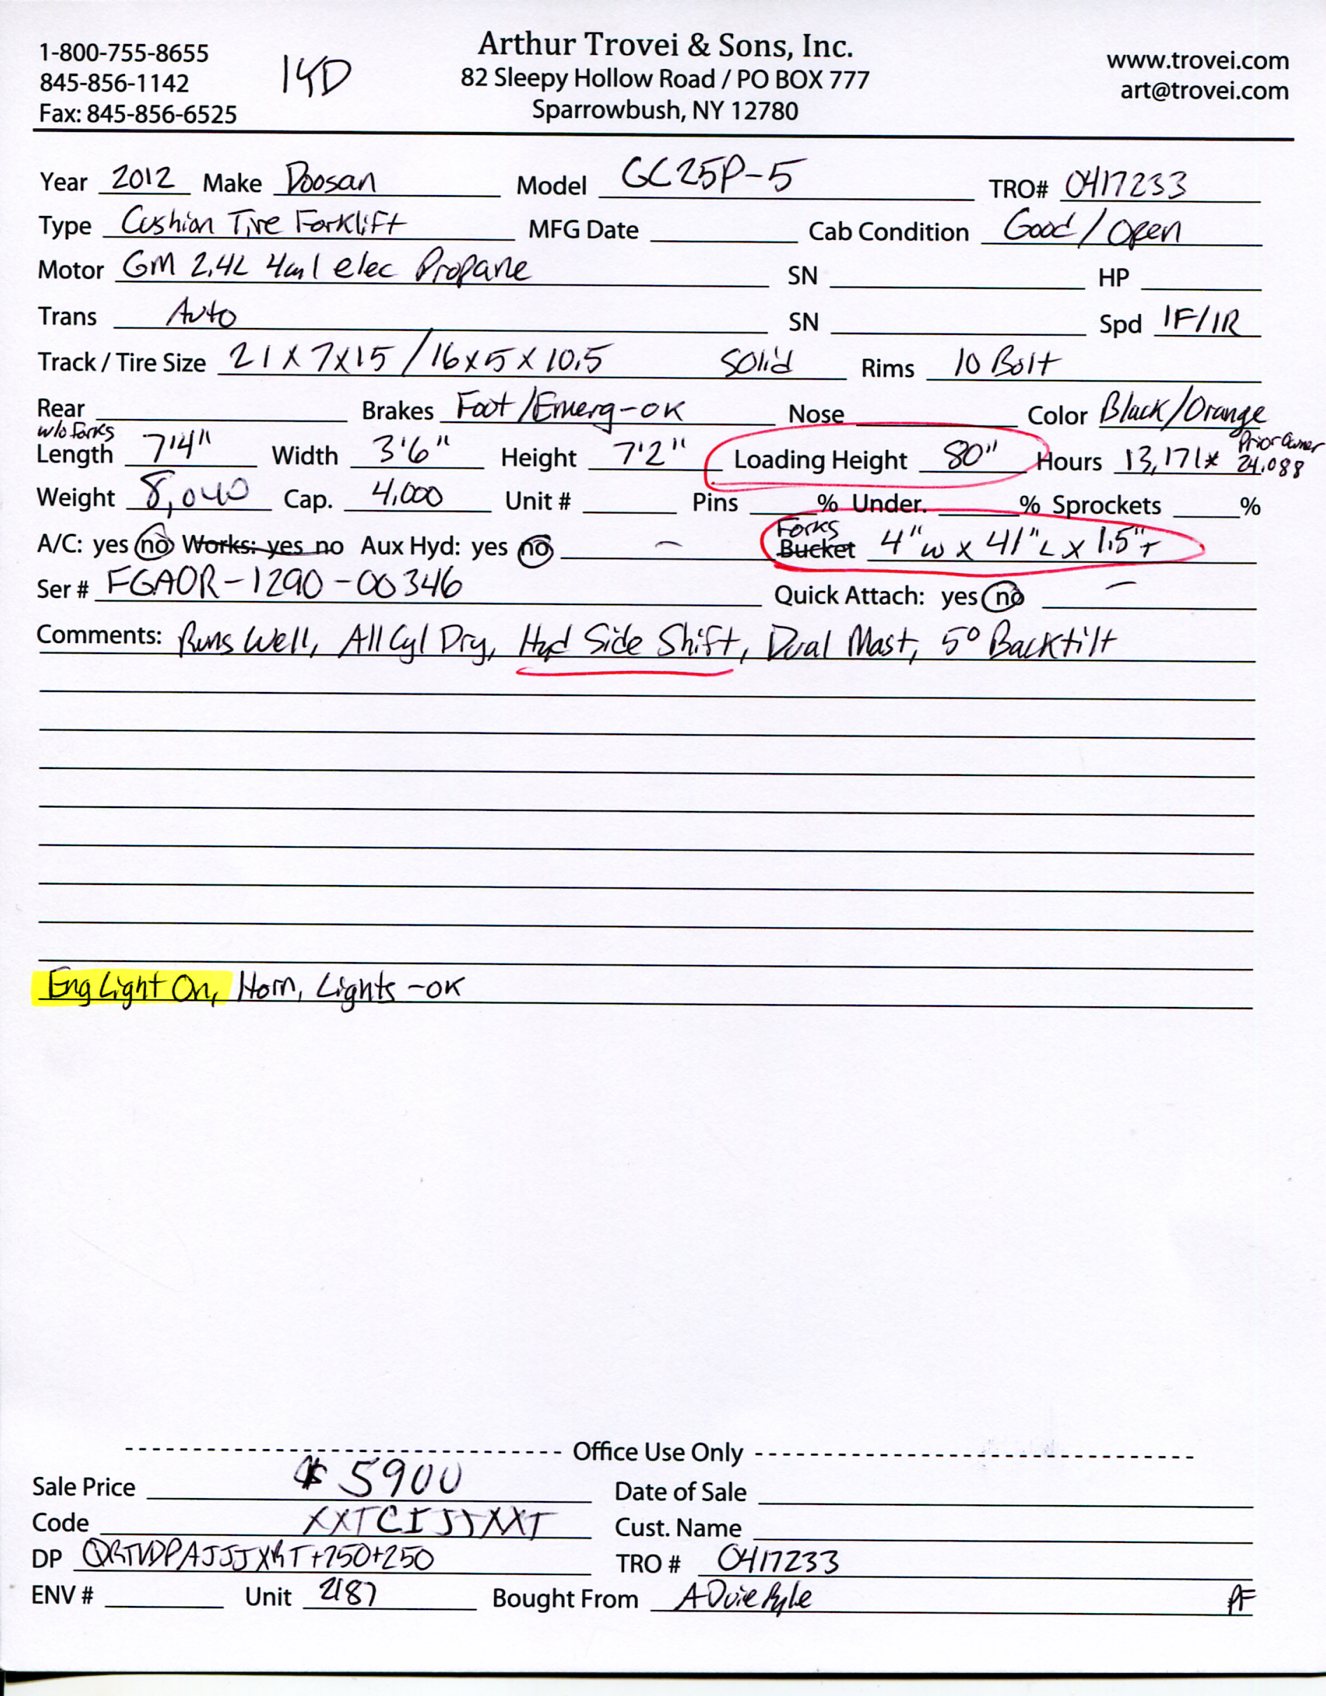 1-800-755-8655
845-856-1142
Fax: 845-856-6525
14D
Arthur Trovei & Sons, Inc.
82 Sleepy Hollow Road / PO BOX 777
Sparrowbush, NY 12780
www.trovei.com
art@trovei.com
Year 2012 Make Doosan Model GC25P-5 TRO# 0417233
Type Cushion Tire Forklift MFG Date Cab Condition Good / Open
Motor GM 2.4L 4cyl elec Propane SN HP
Trans Auto SN Spd 1F/1R
Track / Tire Size 21 x 7 x 15 / 16 x 5 x 10.5 Solid Rims 10 Bolt
Rear Brakes Foot / Emerg-OK Nose Color Black/Orange
w/o Forks
Length 7'4" Width 3'6" Height 7'2" Loading Height 80" Hours 13,171* Prior Owner 24,088
Weight 8,040 Cap. 4,000 Unit # Pins % Under. % Sprockets %
A/C: yes no Works: yes no Aux Hyd: yes no – Forks Bucket 4"W x 41"L x 1.5"T
Ser # FGA0R-1290-00346 Quick Attach: yes no –
Comments: Runs Well, All Cyl Dry, Hyd Side Shift, Dual Mast, 5° Backtilt
Eng Light On, Horn, Lights -OK
Office Use Only
Sale Price $5900 Date of Sale
Code Cust. Name
DP TRO # 0417233
ENV # Unit 2187 Bought From PF